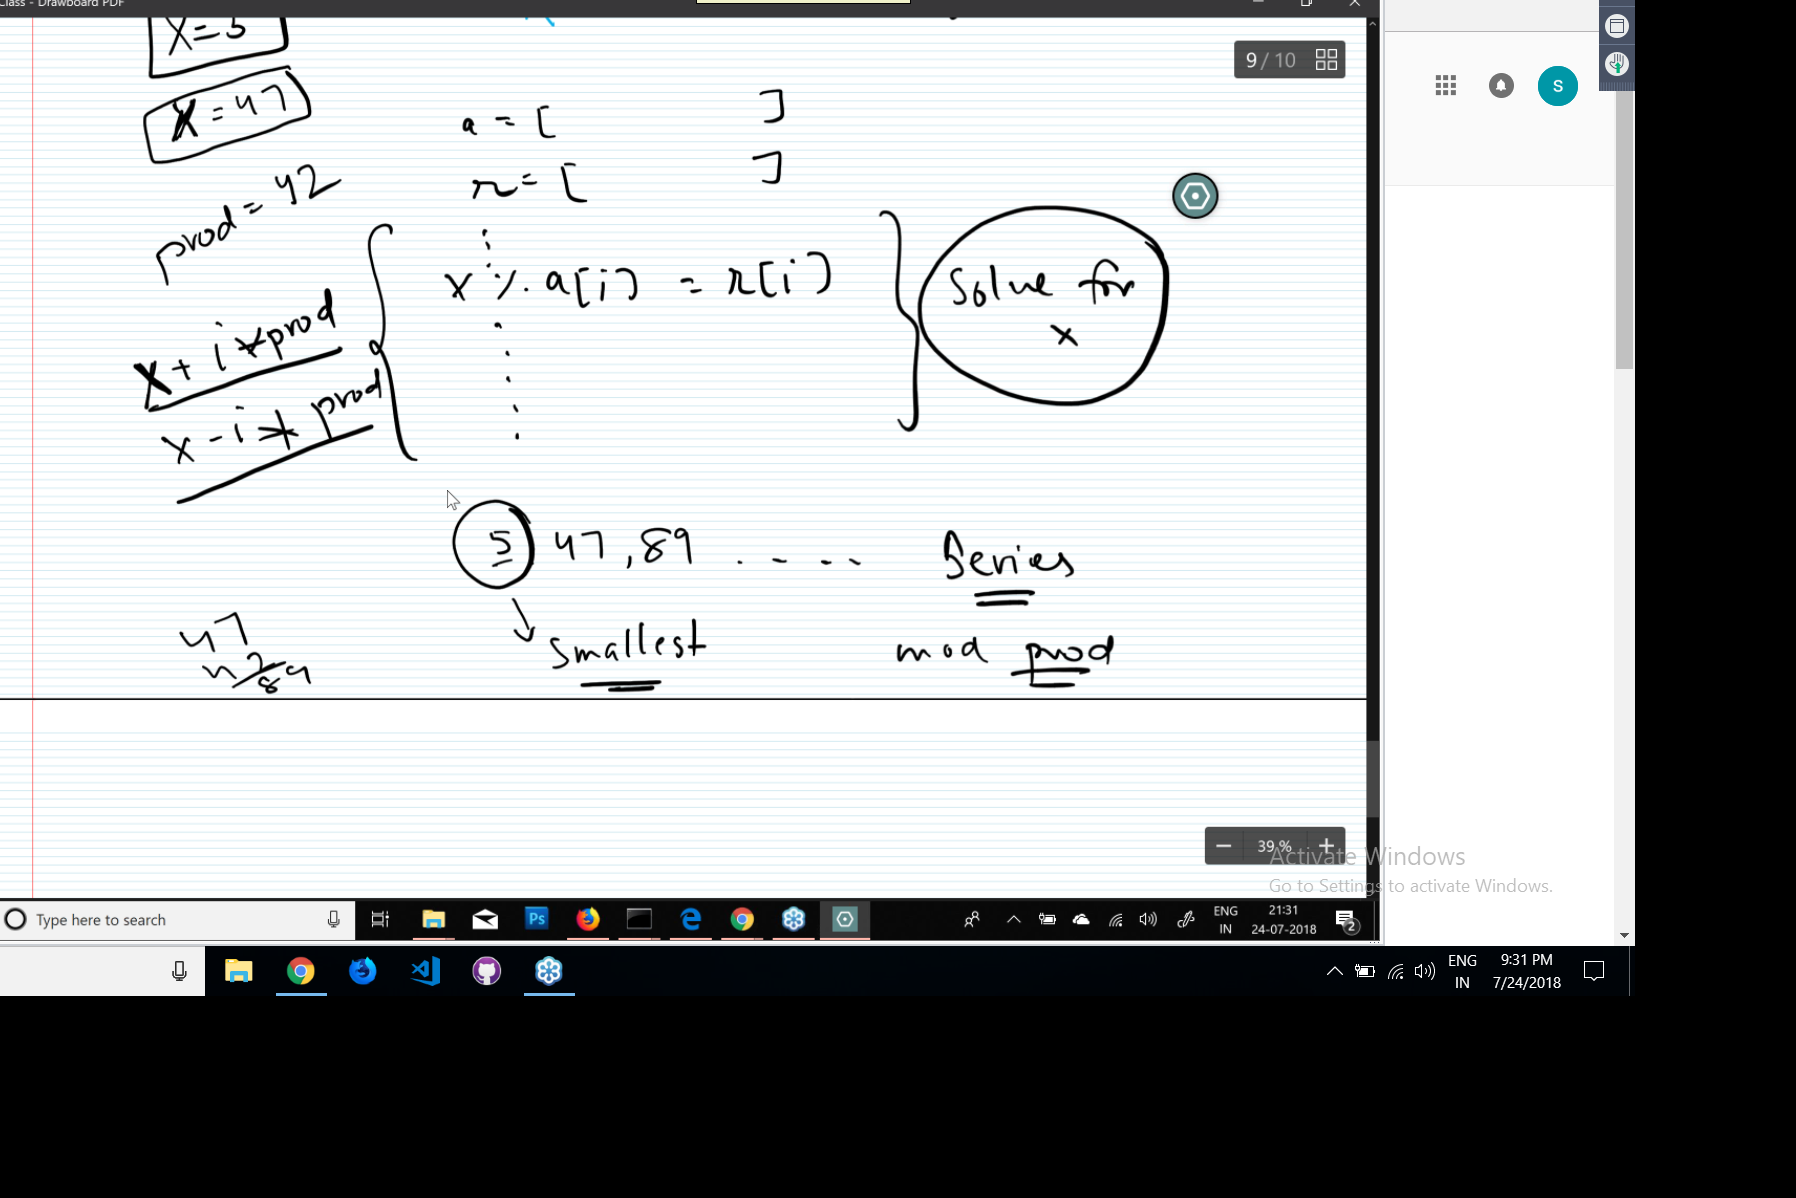 Class - Drawboard PDF
9 / 10
S
x = 5
x = 47
a = [ ]
r = [ ]
prod = 42
x % a[i] = r[i]
Solve for
x
x + i * prod
x - i * prod
5 47, 89 . - - . .
Series
Smallest
mod prod
47
42
89
39 %
Activate Windows
Go to Settings to activate Windows.
Type here to search
Ps
ENG
IN
21:31
24-07-2018
2
ENG
IN
9:31 PM
7/24/2018